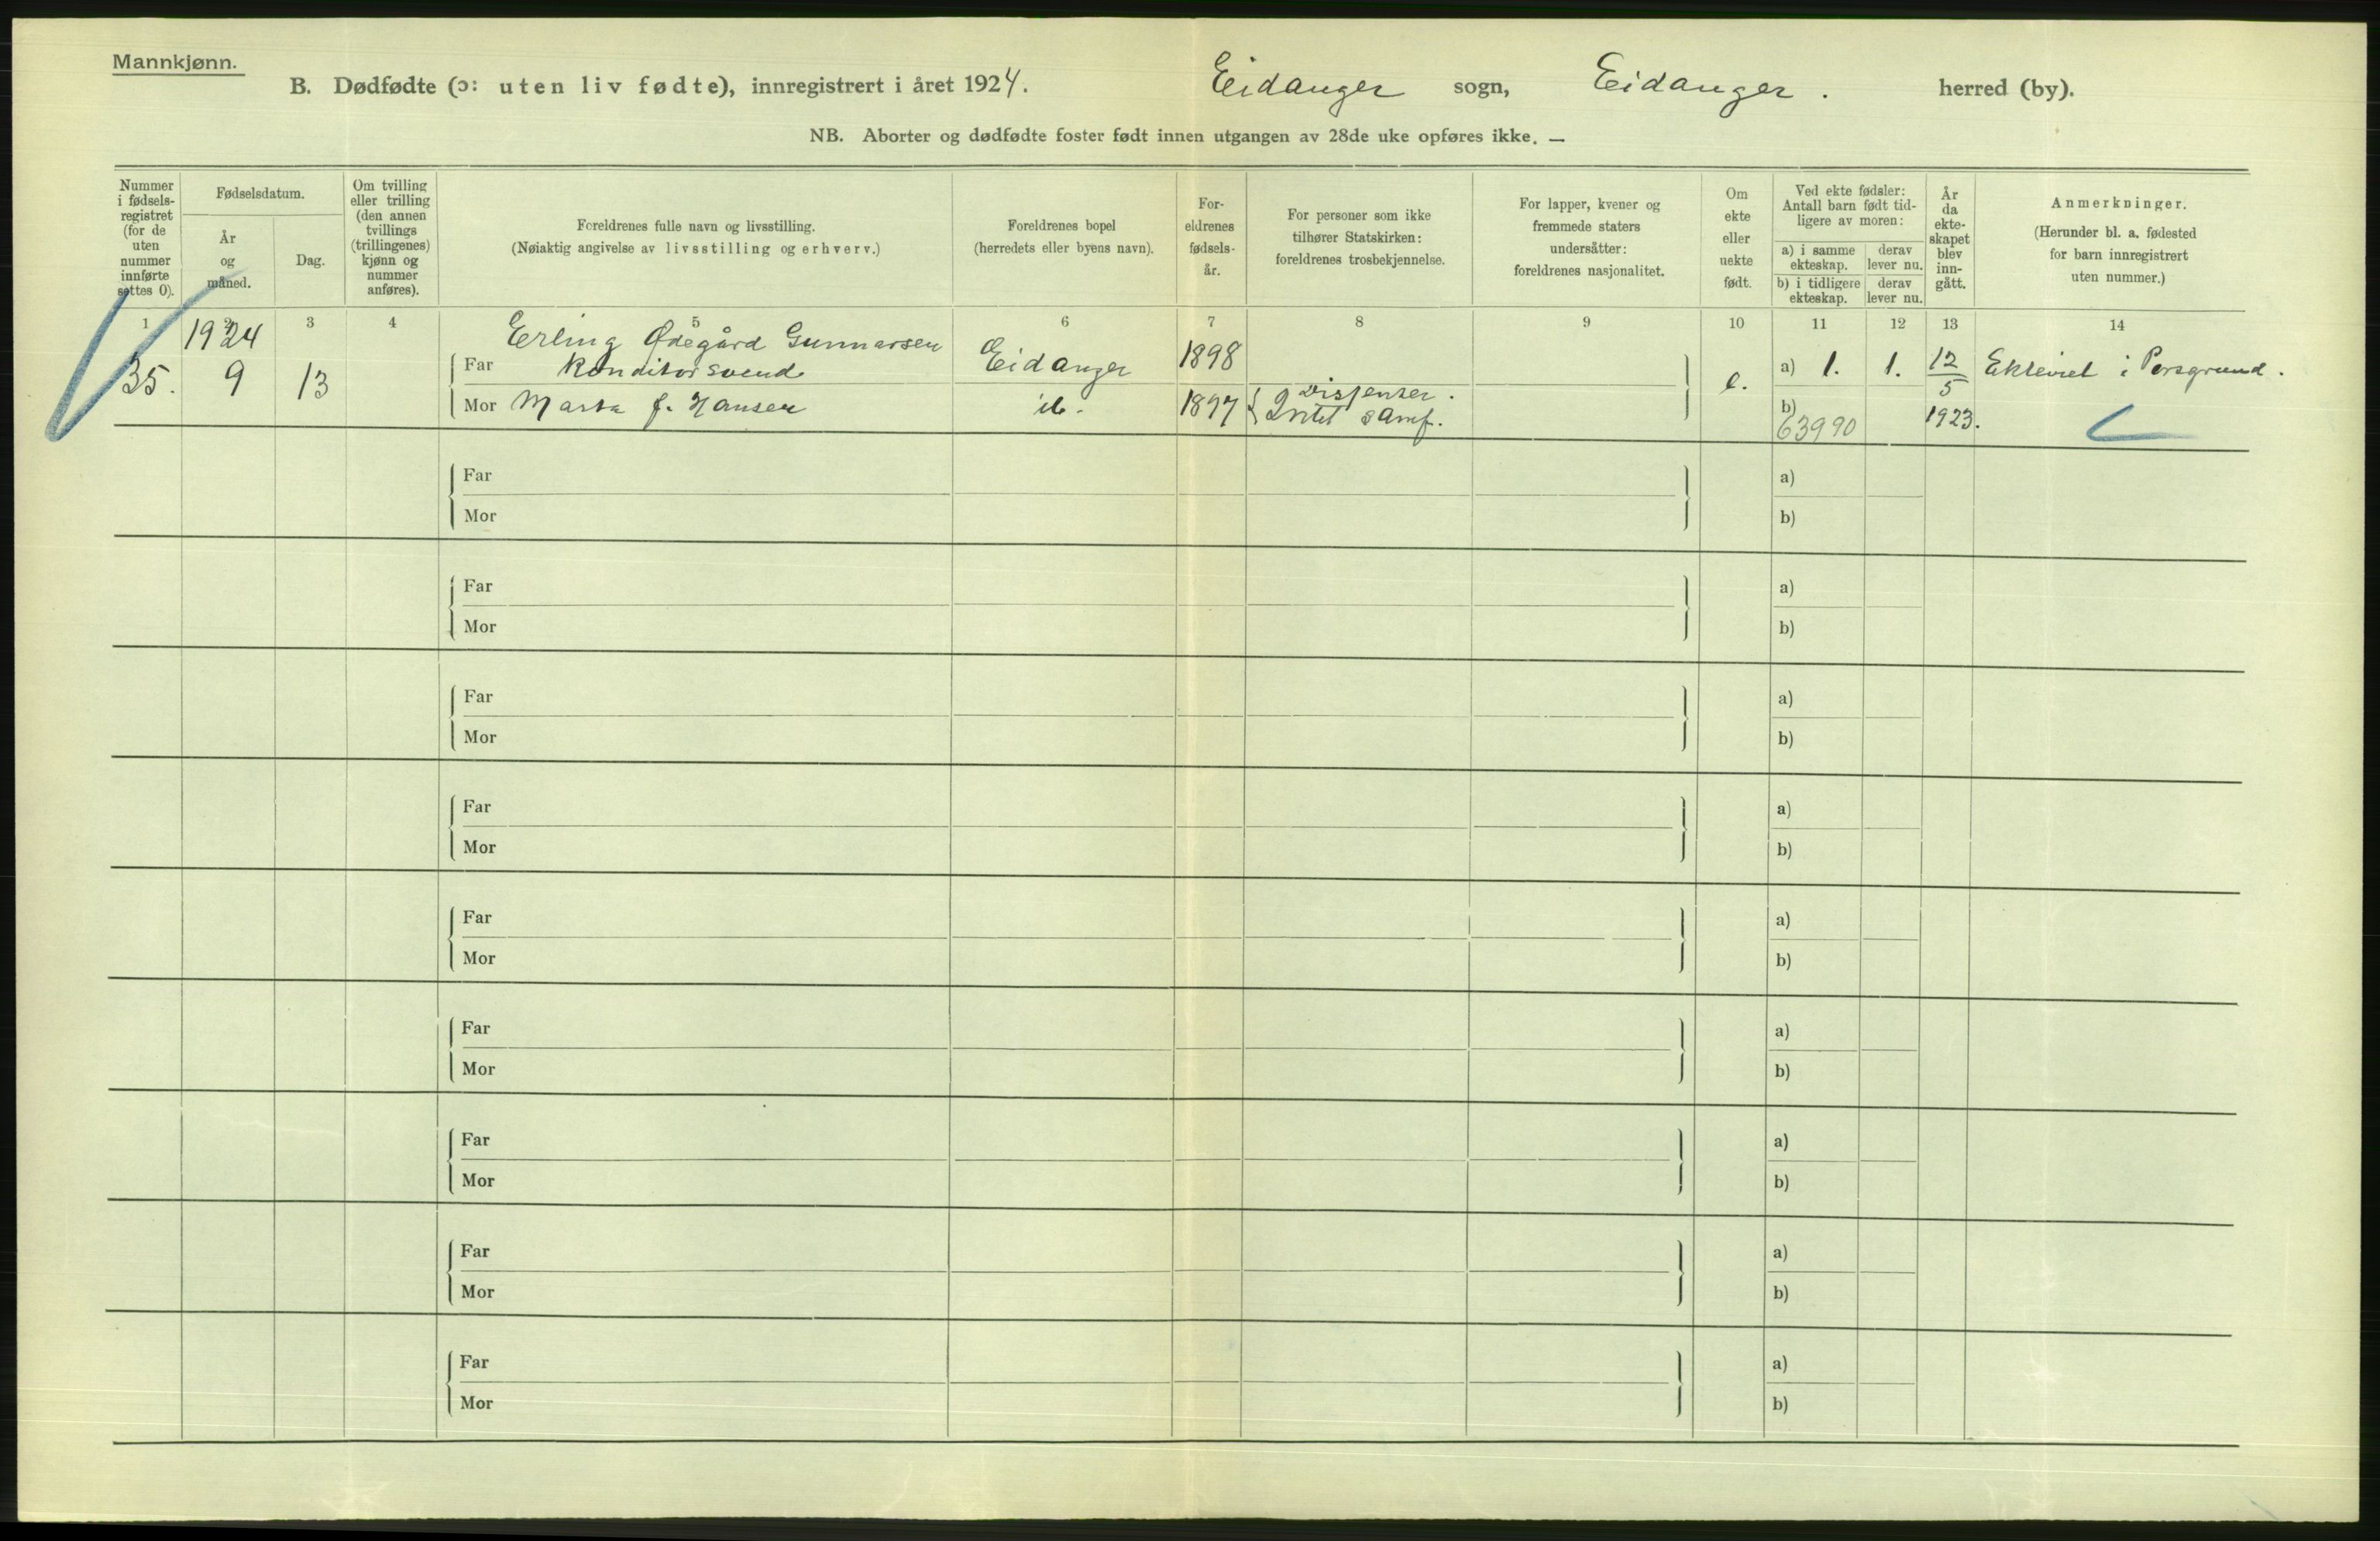 Mannkjønn.
B. Dødfødte (ɔ: uten liv fødte), innregistrert i året 1924. Eidanger sogn, Eidanger. herred (by).
NB. Aborter og dødfødte foster født innen utgangen av 28de uke opføres ikke. —
Nummer i fødsels-registret (for de uten nummer innførte settes 0).
Fødselsdatum.
År og måned.
Dag.
Om tvilling eller trilling (den annen tvillings (trillingenes) kjønn og nummer anføres).
Foreldrenes fulle navn og livsstilling.
(Nøiaktig angivelse av livsstilling og erhverv.)
Foreldrenes bopel
(herredets eller byens navn).
For-eldrenes fødsels-år.
For personer som ikke tilhører Statskirken: foreldrenes trosbekjennelse.
For lapper, kvener og fremmede staters undersåtter: foreldrenes nasjonalitet.
Om ekte eller uekte født.
Ved ekte fødsler: Antall barn født tid-ligere av moren:
a) i samme ekteskap. derav lever nu.
b) i tidligere ekteskap. derav lever nu.
År da ekte-skapet blev inn-gått.
Anmerkninger.
(Herunder bl. a. fødested for barn innregistrert uten nummer.)
1 2 3 4 5 6 7 8 9 10 11 12 13 14
1924 Erling Ødegård Gunnarsen
35. 9 13 Far Konditorsvend Eidanger 1898 e. a) 1. 1. 12/5 Ekteviet i Porsgrund.
Mor Marta J. Hansen ib. 1897 Dissenter. Intet samf. b) 1923.
63990
Far a)
Mor b)
Far a)
Mor b)
Far a)
Mor b)
Far a)
Mor b)
Far a)
Mor b)
Far a)
Mor b)
Far a)
Mor b)
Far a)
Mor b)
Far a)
Mor b)